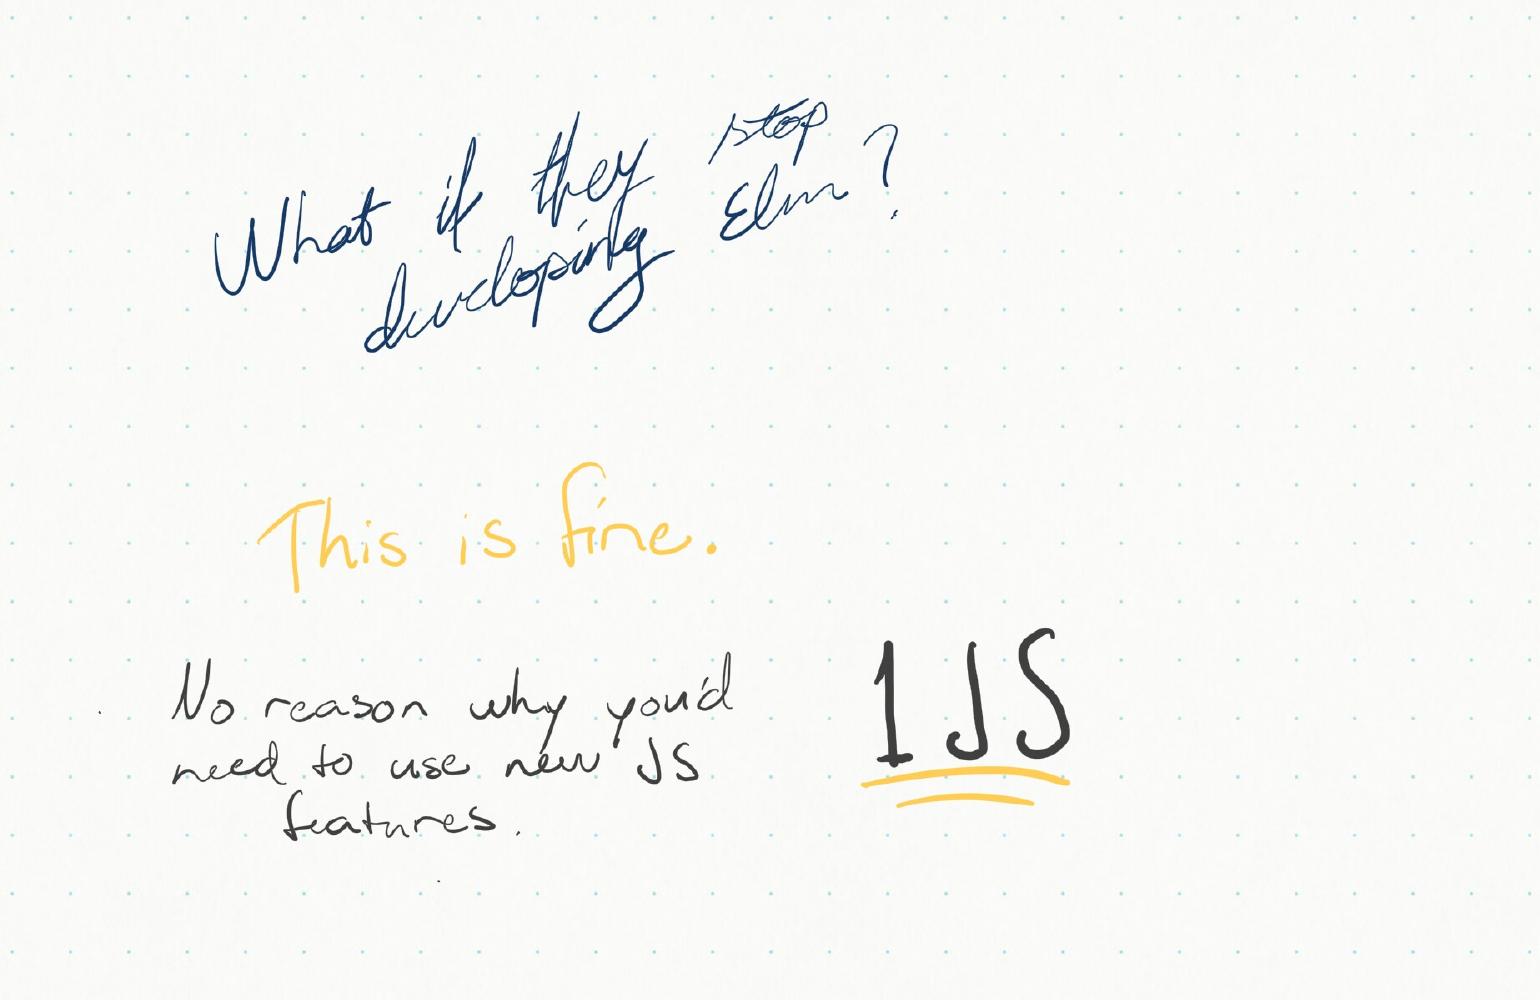 What if they stop
developing Elm?
This is fine.
No reason why you'd
need to use new JS
features.
1JS